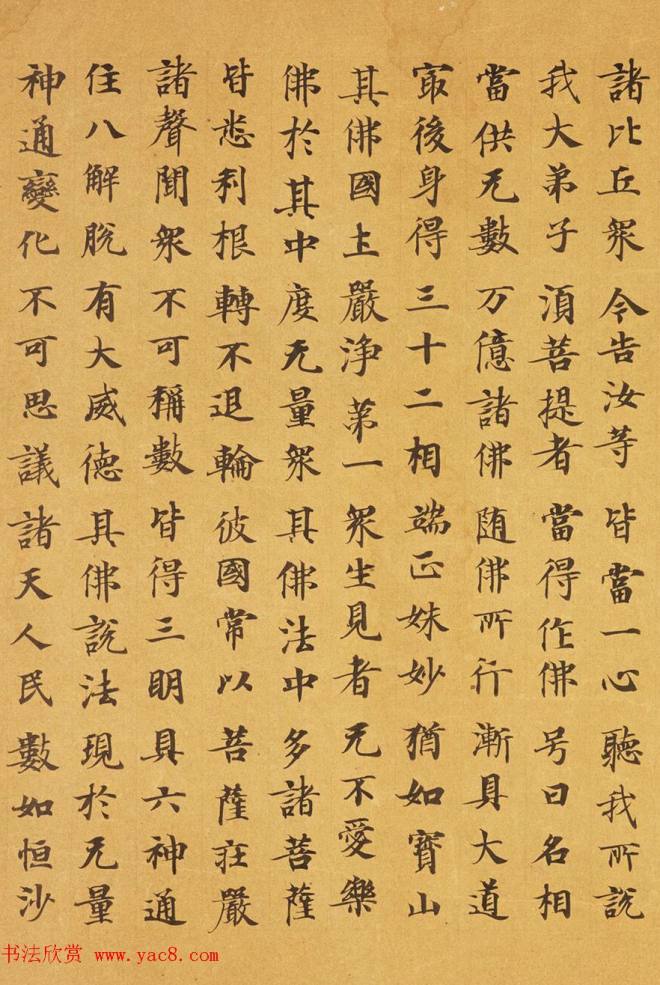 諸比丘衆 今告汝等 皆當一心 聽我所説
我大弟子 湏菩提者 當得作佛 号曰名相
當供无數 万億諸佛 随佛所行 漸具大道
㝡後身得 三十二相 端正姝妙 猶如寳山
其佛國土 嚴淨第一 衆生見者 无不愛樂
佛於其中 度无量衆 其佛法中 多諸菩薩
皆悉利根 轉不退輪 彼國常以 菩薩莊嚴
諸聲聞衆 不可稱數 皆得三明 具六神通
住八解脱 有大威德 其佛説法 現於无量
神通變化 不可思議 諸天人民 數如恒沙
书法欣赏 www.yac8.com